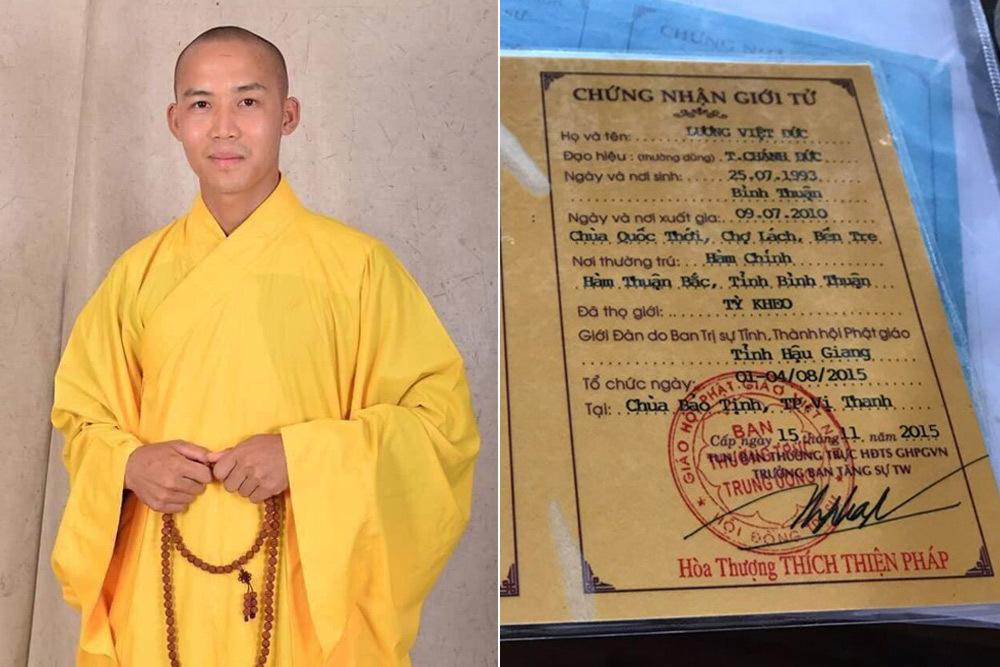 CHỨNG NHẬN
CHỨNG NHẬN GIỚI TỬ
Họ và tên: LƯƠNG VIỆT ĐỨC
Đạo hiệu : (thường dùng) T.CHÁNH ĐỨC
Ngày và nơi sinh: 25.07.1993
Bình Thuận
Ngày và nơi xuất gia: 09.07.2010
Chùa Quốc Thới, Chợ Lách, Bến Tre
Nơi thường trú: Hàm Chính
Hàm Thuận Bắc, Tỉnh Bình Thuận
Đã thọ giới: TỲ KHEO
Giới Đàn do Ban Trị sự Tỉnh, Thành hội Phật giáo
Tỉnh Hậu Giang
Tổ chức ngày: 01-04/08/2015
Tại: Chùa Bảo Tịnh, TP.Vị Thanh
Cấp ngày 15 tháng 11 năm 2015
TUN. BAN THƯỜNG TRỰC HĐTS GHPGVN
TRƯỞNG BAN TĂNG SỰ TW
GIÁO HỘI PHẬT GIÁO
BAN
THƯỜNG TRỰC
TRUNG ƯƠNG
HỘI ĐỒNG
Hòa Thượng THÍCH THIỆN PHÁP